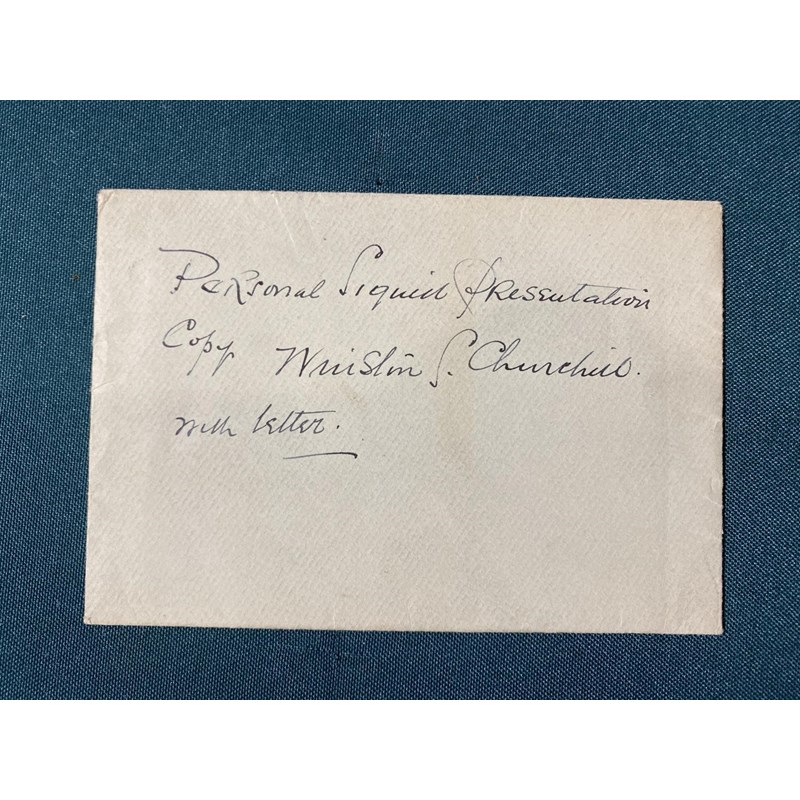 Personal Signed Presentation
Copy Winston S. Churchill.
with letter.